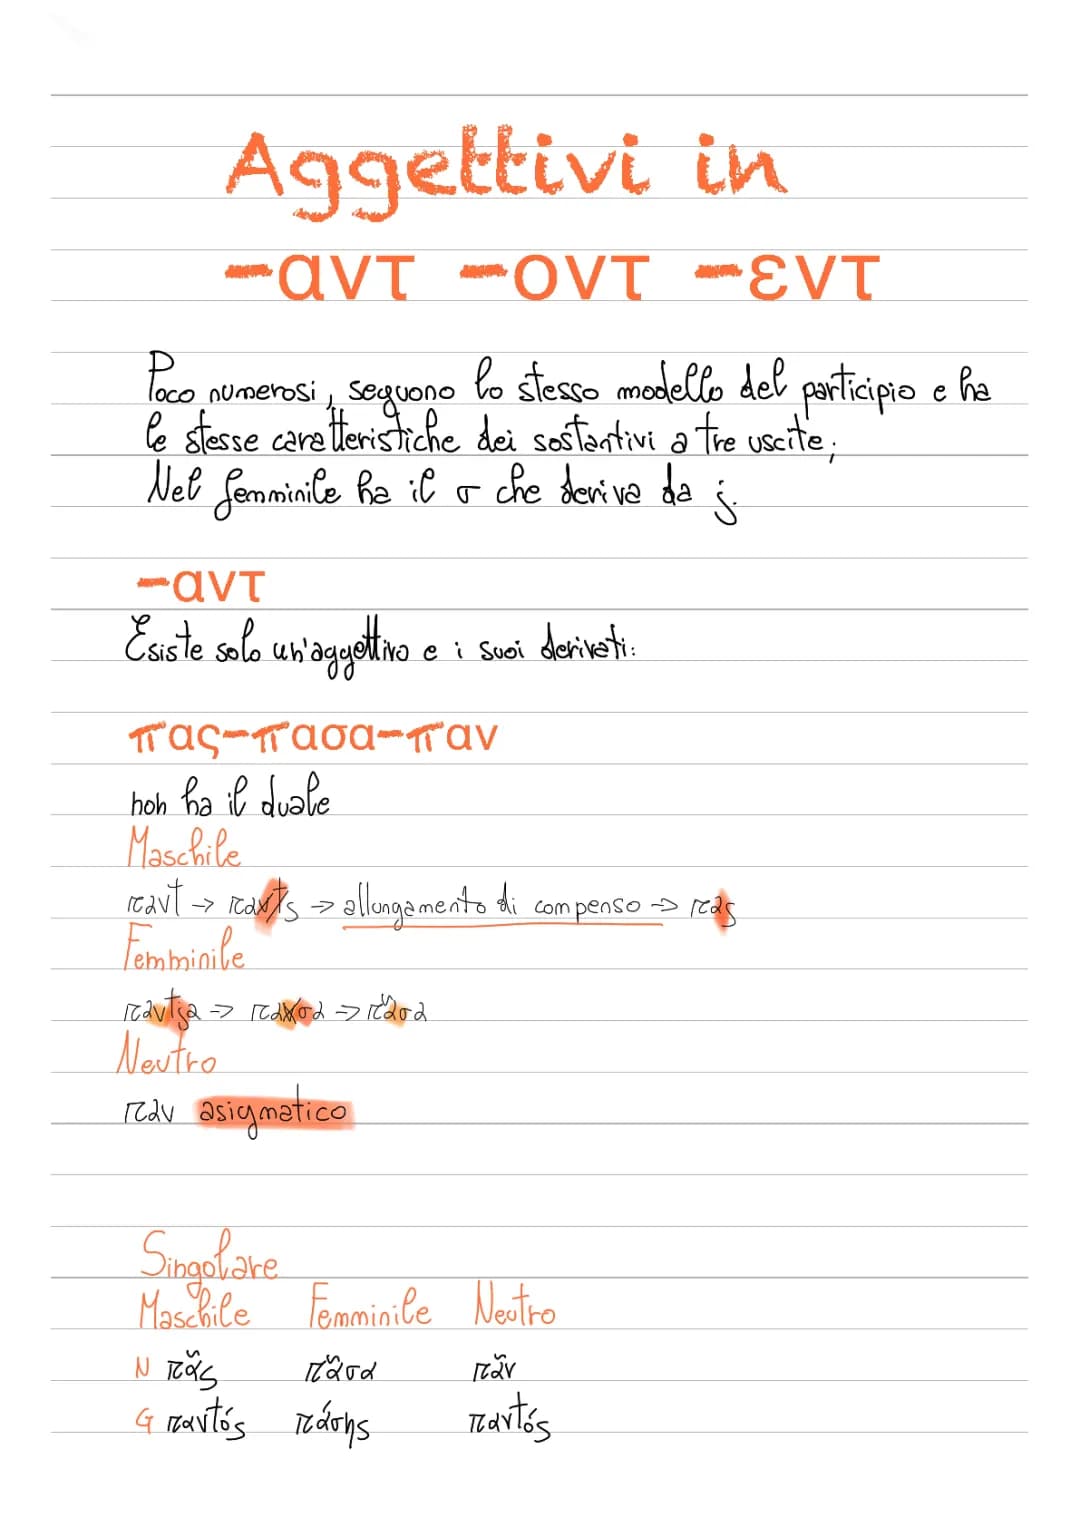 Aggettivi in
-αντ -οντ -εντ
Poco numerosi, seguono lo stesso modello del participio e ha
le stesse caratteristiche dei sostantivi a tre uscite;
Nel femminile ha il σ che deriva da j.
-αντ
Esiste solo un'aggettivo e i suoi derivati:
πας-πασα-παν
non ha il duale
Maschile
παντ → παντς → allungamento di compenso → πας
Femminile
παντja → πανσα → πᾶσα
Neutro
παν asigmatico
Singolare
Maschile Femminile Neutro
N πᾶς πᾶσα πᾶν
G παντός πάσης παντός